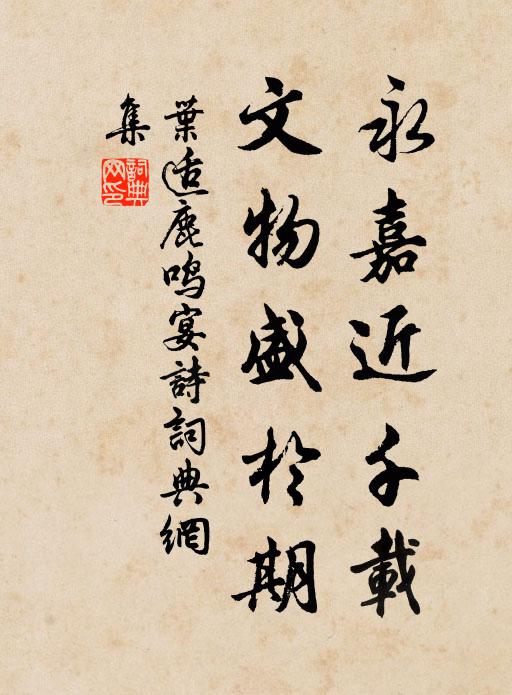 永嘉近千載
文物盛於期
葉适鹿鳴宴詩詞典網
集
詞典網印